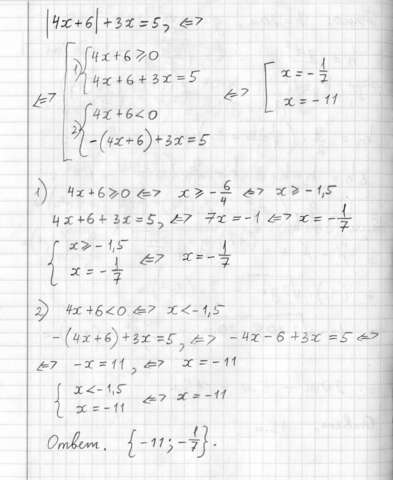 |4x+6|+3x=5, <=>
<=> [ 1) { 4x+6≥0
4x+6+3x=5
2) { 4x+6<0
-(4x+6)+3x=5
<=> [ x=-1/2
x=-11
1) 4x+6≥0 <=> x≥-6/4 <=> x≥-1,5
4x+6+3x=5, <=> 7x=-1 <=> x=-1/7
{ x≥-1,5
x=-1/7 <=> x=-1/7
2) 4x+6<0 <=> x<-1,5
-(4x+6)+3x=5, <=> -4x-6+3x=5 <=>
<=> -x=11, <=> x=-11
{ x<-1,5
x=-11 <=> x=-11
Ответ. {-11; -1/7}.